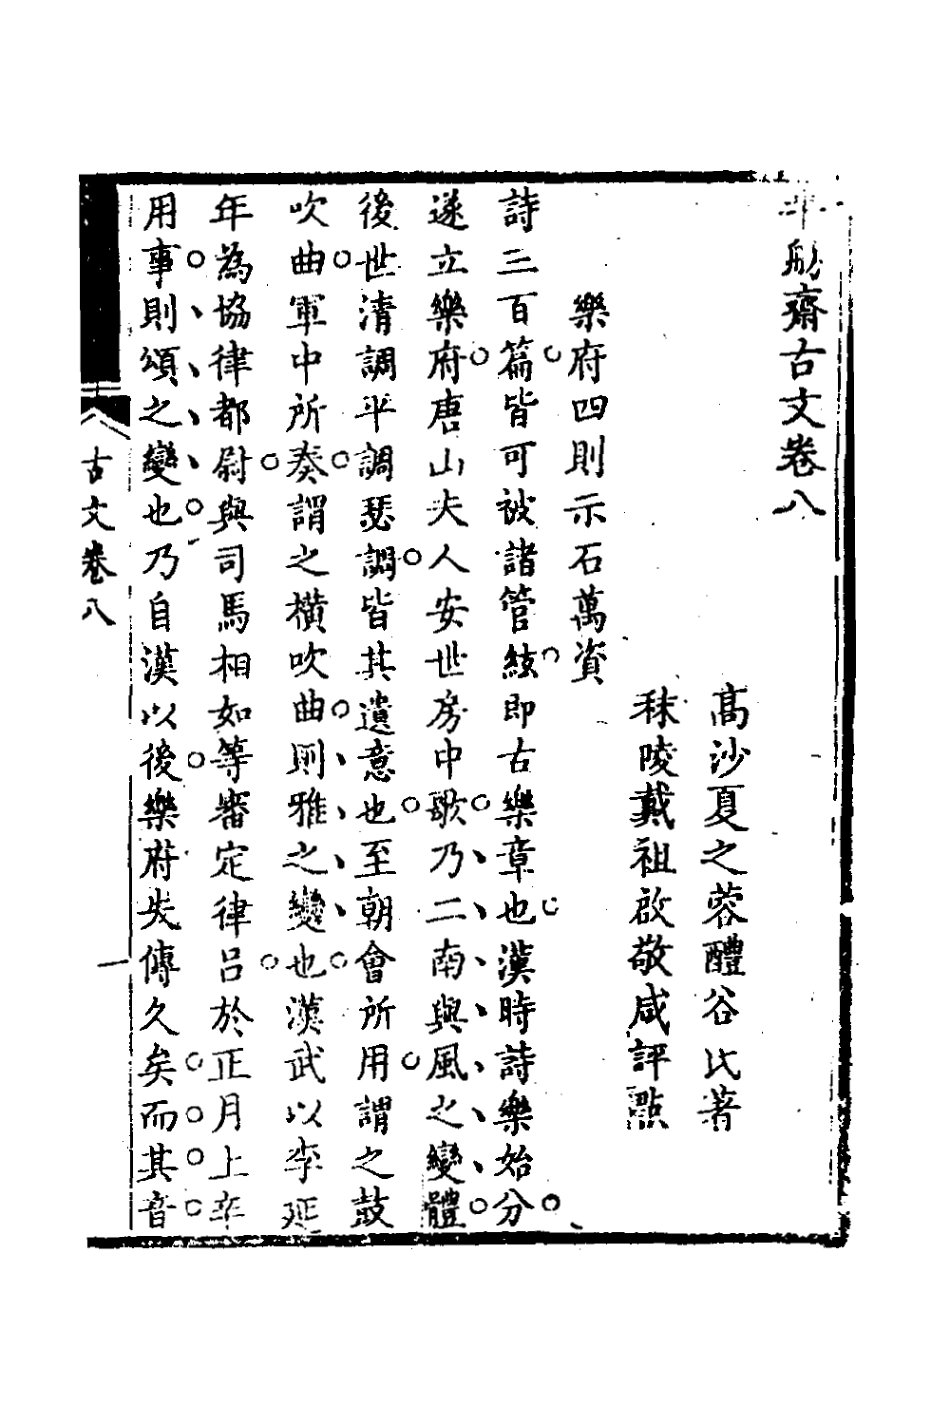 半舫齋古文卷八
高沙夏之蓉醴谷氏著
秣陵戴祖啟敬咸評點
樂府四則示石萬資
詩三百篇皆可被諸管絃即古樂章也漢時詩樂始分
遂立樂府唐山夫人安世房中歌乃二南與風之變體
後世清調平調瑟調皆其遺意也至朝會所用謂之鼓
吹曲軍中所奏謂之橫吹曲則雅之變也漢武以李延
年為協律都尉與司馬相如等審定律呂於正月上辛
用事則頌之變也乃自漢以後樂府失傳久矣而其音
古文卷八
一